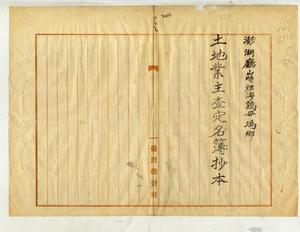 澎湖廳嵵裡澳鷄母塢鄉
土地業主查定名簿抄本
臺灣總督府